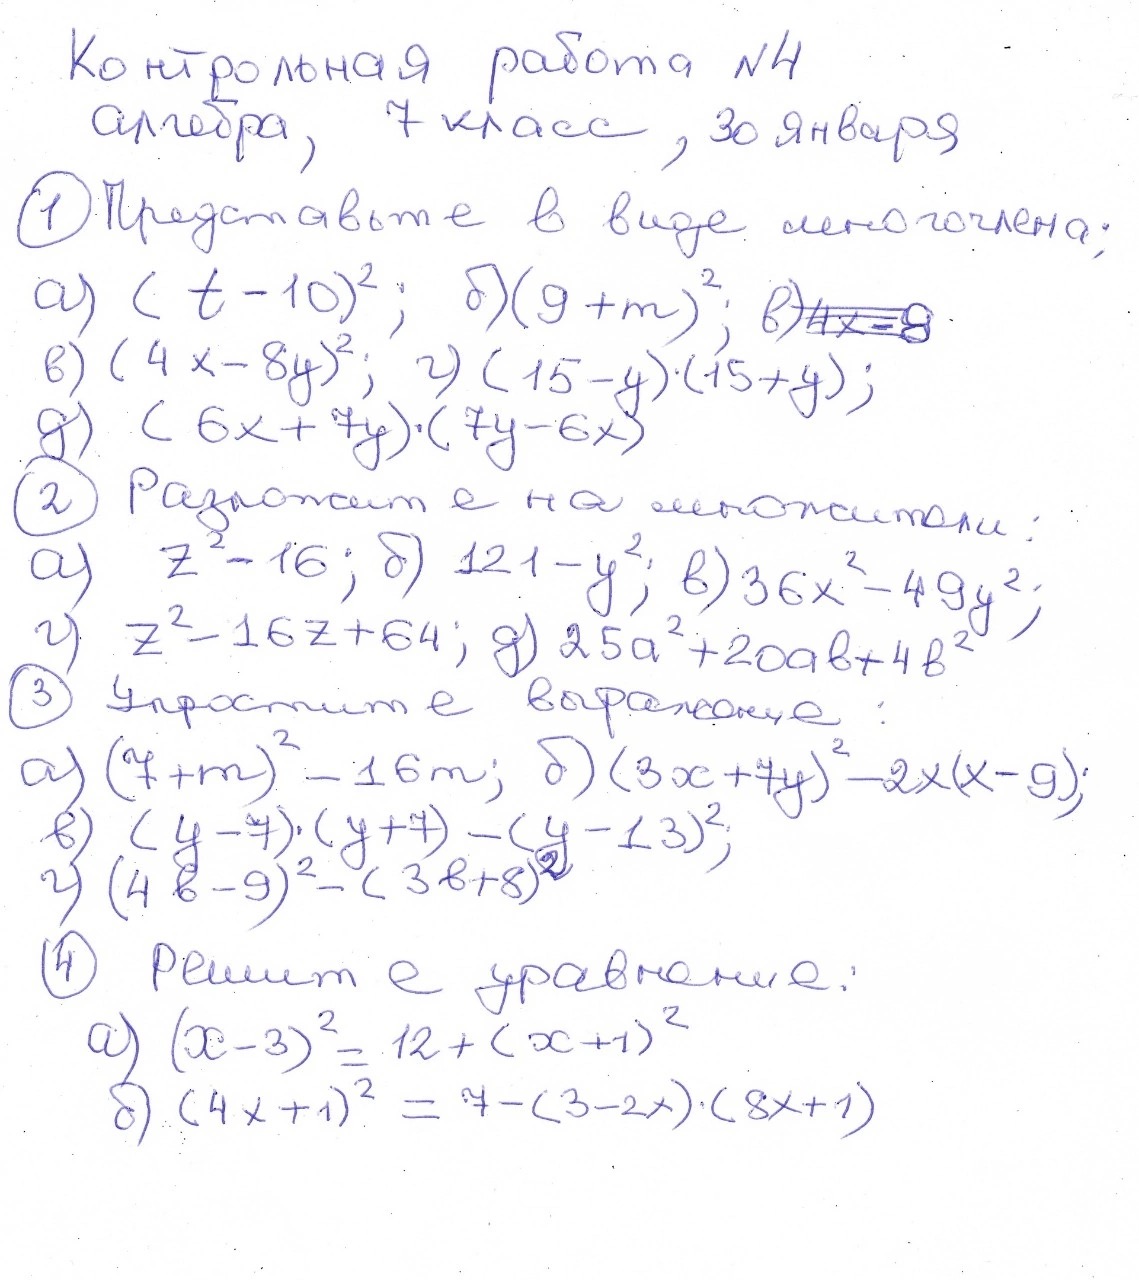 Контрольная работа №4
алгебра, 7 класс, 30 января
① Представьте в виде многочлена:
а) (t-10)²; б) (9+m)²; в) 4x-8
в) (4x-8y)²; г) (15-y)·(15+y);
д) (6x+7y)·(7y-6x)
② Разложите на множители:
а) z²-16; б) 121-y²; в) 36x²-49y²;
г) z²-16z+64; д) 25a²+20ab+4b²
③ Упростите выражение:
а) (7+m)²-16m; б) (3x+7y)²-2x(x-9);
в) (y-7)·(y+7)-(y-13)²;
г) (4b-9)²-(3b+8)²
④ Решите уравнение:
а) (x-3)²=12+(x+1)²
б) (4x+1)²=7-(3-2x)·(8x+1)